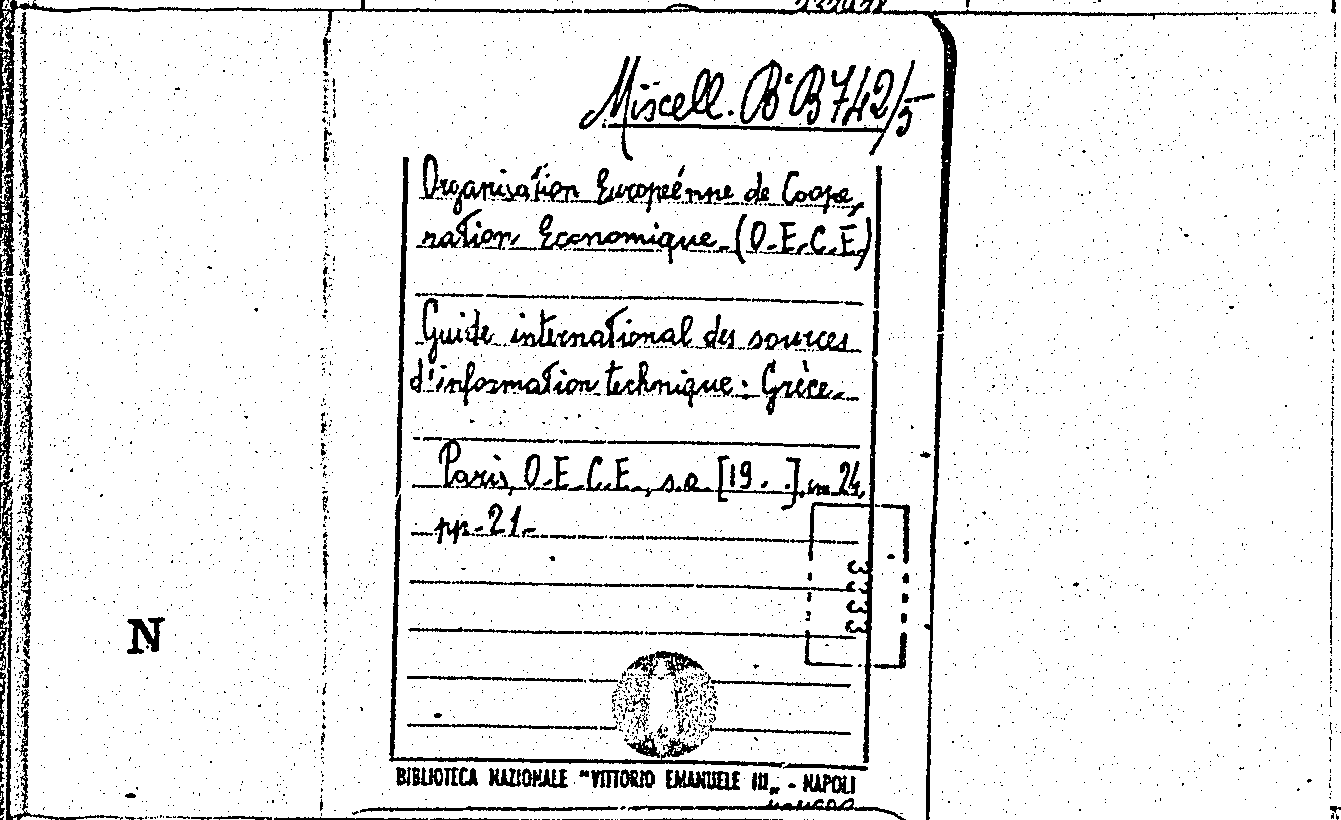 Miscell. B·B 742/5
Organisation Européenne de Coope,
ration Economique (O.E.C.E)
Guide international des sources
d'information technique: Grèce.
Paris, O.E.C.E., s.a. [19 . .]. cm 24.
pp. 21-
N
BIBLIOTECA NAZIONALE "VITTORIO EMANUELE III„ - NAPOLI